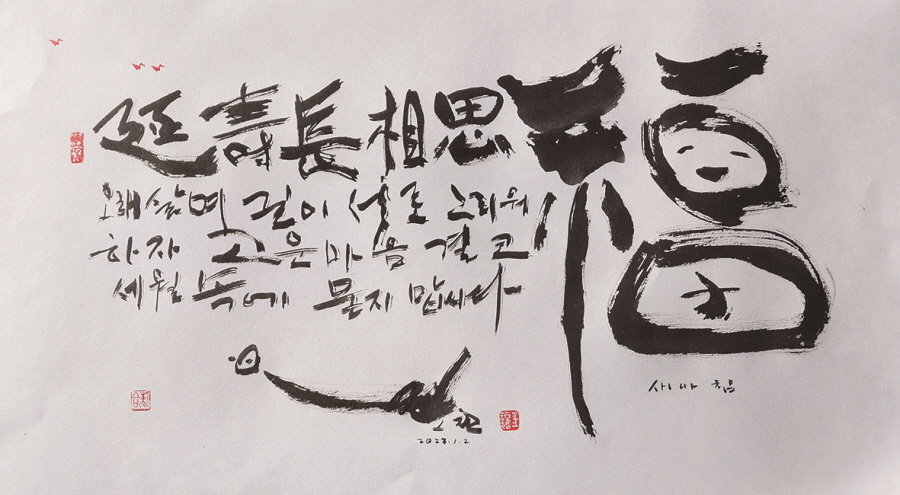 延壽長相思
福
오래 살며 길이 서로 그리워
하자 고운 마음 결 고
세월 속에 묻지 맙시다
2023.1.2